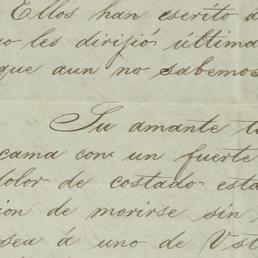 Ellos han escrito a
o les dirijió última
que aun no sabemos
Su amante t
cama con un fuerte
dolor de costado esta
ion de morirse sin
sea á uno de Vst